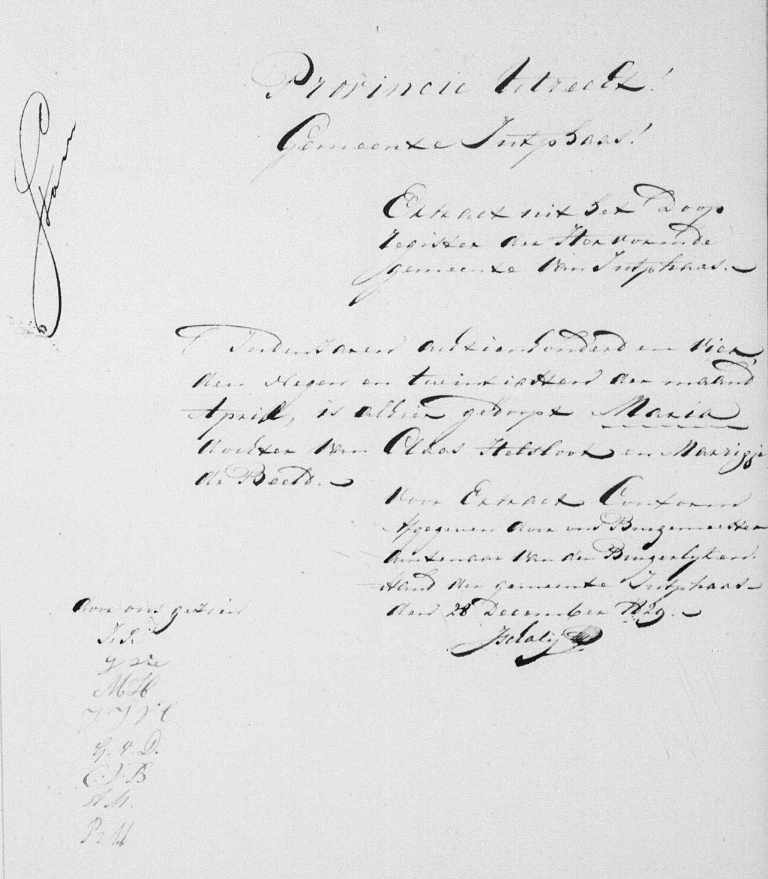 Provincie Utrecht!
Gemeente Jutphaas!
Extract uit het Doop
register der Hervormde
gemeente van Jutphaas.
In den Jaren achtienhonderd en vier,
den negen en twintichsten der maand
April, is alhier gedoopt Maria
dochter van Claas Helsloot en Marrigje
de Beeld.
Voor Extract Conform
Afgegeven door ons Burgemeester
amtenaar van den Burgerlyken
stand der gemeente Jutphaas
den 28 December 1829.
door ons gezien
M H
G. v D.
J B
A M.